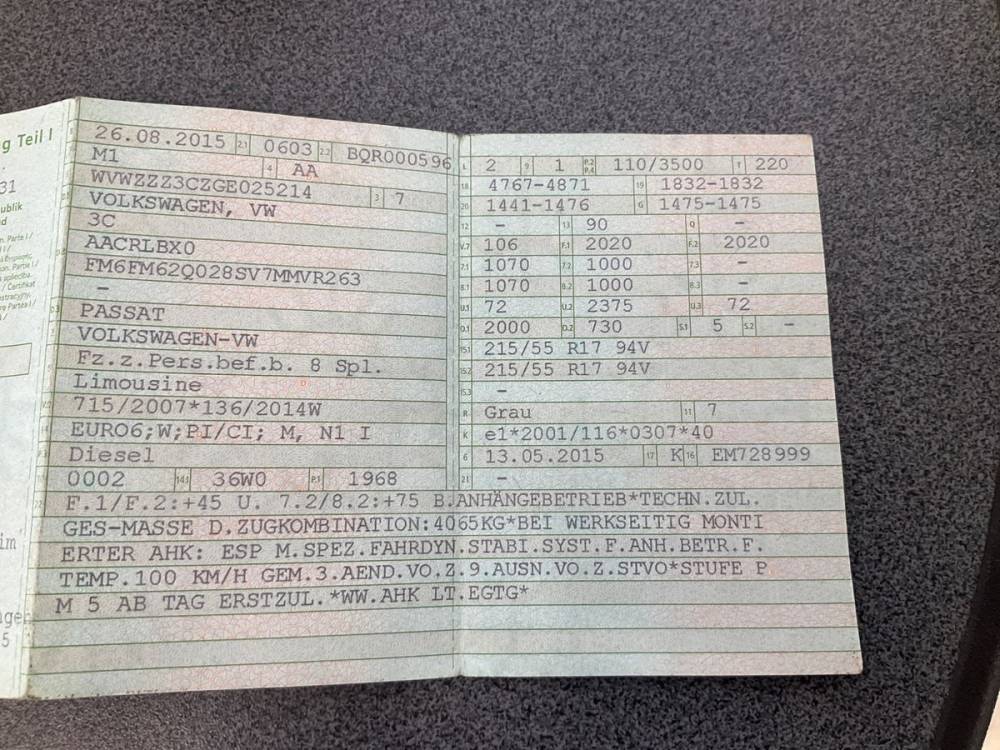 g Teil I
31
ublik
d
im
5
26.08.2015 2.1 0603 2.2 BQR000596
M1 4 AA
WVWZZZ3CZGE025214 3 7
VOLKSWAGEN, VW
3C
AACRLBX0
FM6FM62Q028SV7MMVR263
–
PASSAT
VOLKSWAGEN-VW
Fz.z.Pers.bef.b. 8 Spl.
Limousine
715/2007*136/2014W
EURO6;W;PI/CI; M, N1 I
Diesel
0002 14.1 36W0 P.1 1968
L 2 9 1 P.2 P.4 110/3500 T 220
18 4767-4871 19 1832-1832
20 1441-1476 G 1475-1475
12 – 13 90 Q –
V.7 106 F.1 2020 F.2 2020
7.1 1070 7.2 1000 7.3 –
8.1 1070 8.2 1000 8.3 –
U.1 72 U.2 2375 U.3 72
O.1 2000 O.2 730 S.1 5 S.2 –
15.1 215/55 R17 94V
15.2 215/55 R17 94V
15.3 –
R Grau 11 7
K e1*2001/116*0307*40
6 13.05.2015 17 K 16 EM728999
21 –
F.1/F.2:+45 U. 7.2/8.2:+75 B.ANHÄNGEBETRIEB*TECHN.ZUL.
GES-MASSE D.ZUGKOMBINATION:4065KG*BEI WERKSEITIG MONTI
ERTER AHK: ESP M.SPEZ.FAHRDYN.STABI.SYST.F.ANH.BETR.F.
TEMP.100 KM/H GEM.3.AEND.VO.Z.9.AUSN.VO.Z.STVO*STUFE P
M 5 AB TAG ERSTZUL.*WW.AHK LT.EGTG*